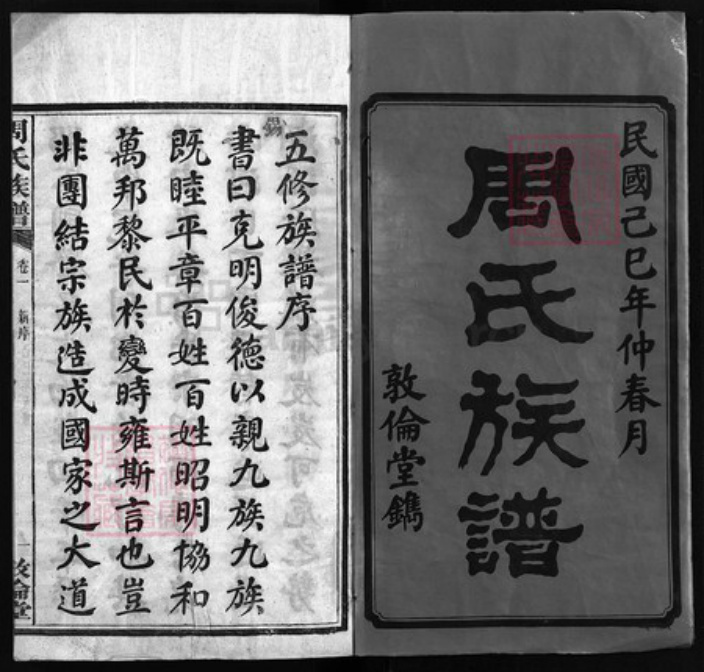 民國己巳年仲春月
周氏族譜
敦倫堂鐫
五修族譜序
書曰克明俊德以親九族九族
既睦平章百姓百姓昭明協和
萬邦黎民於變時雍斯言也豈
非團結宗族造成國家之大道
周氏族譜
卷一
新序
一
敦倫堂